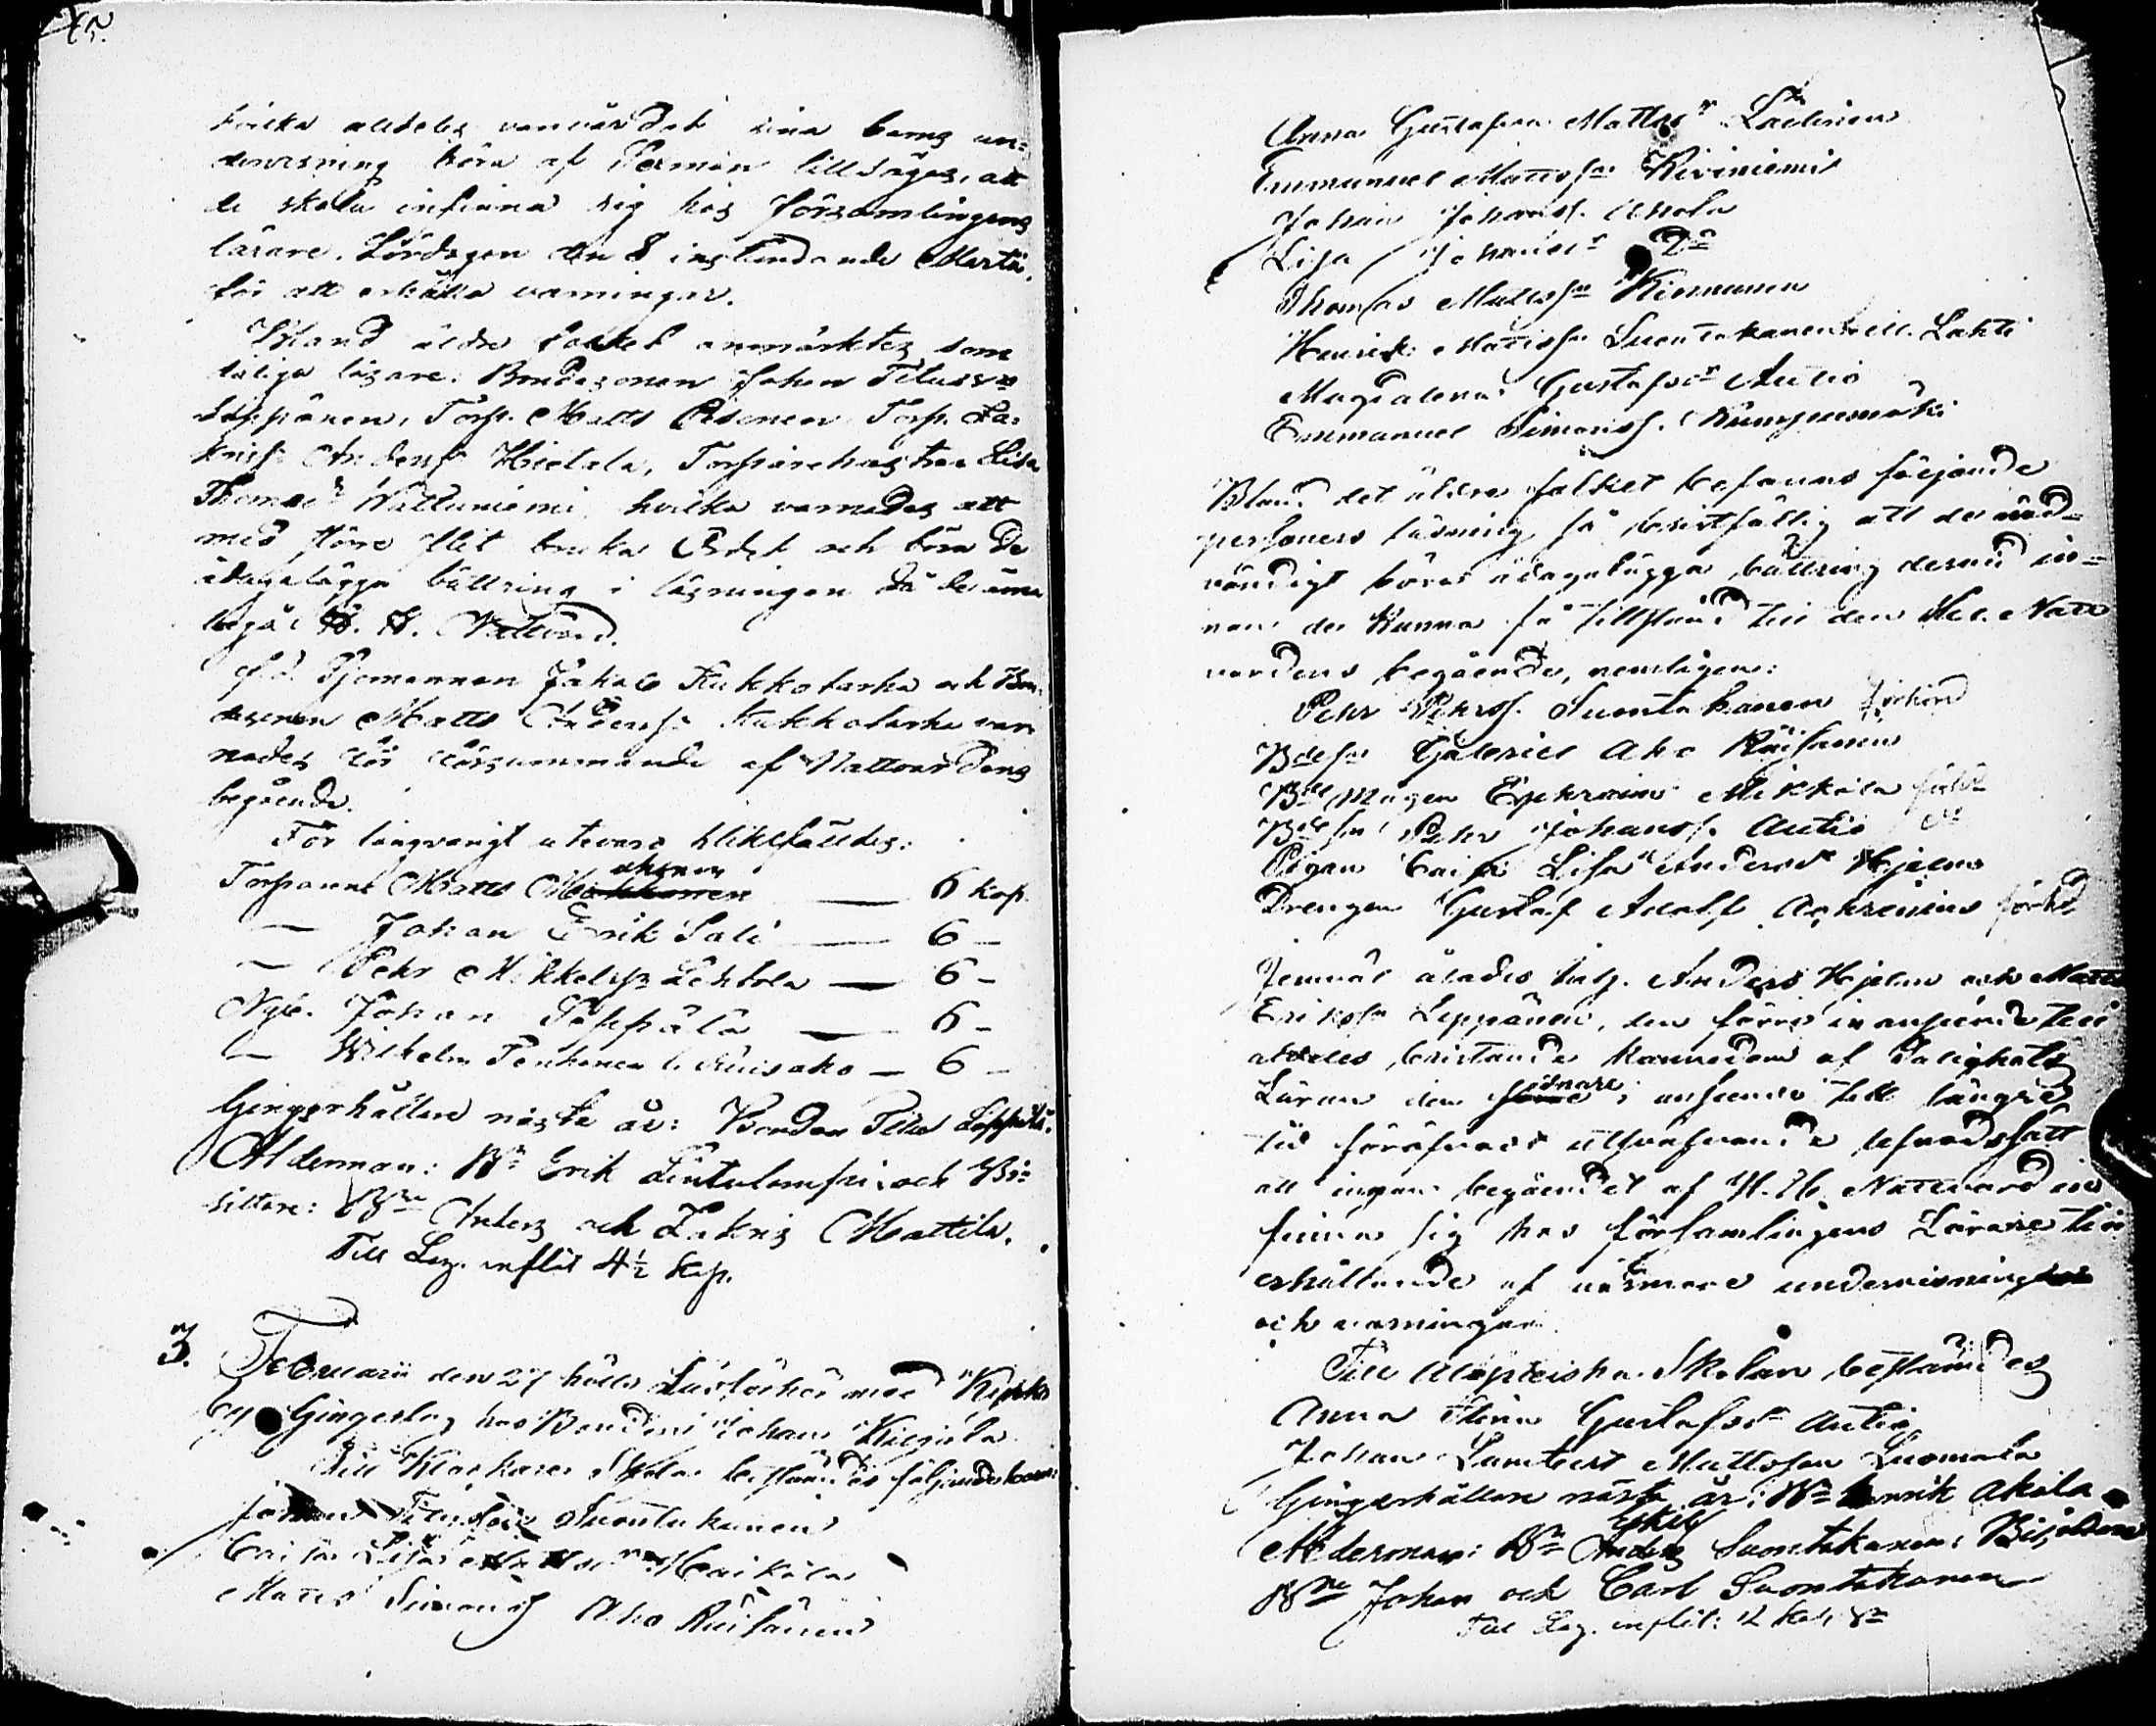 45.
hvilka alldeles vanvårdat sina barns un-
dervisning böra af Sexmän tillsägas, att
de skola infinna sig hos församlingens
lärare. Lördagen den 8 instundande Martii,
för att erhålla varningar.
Bland äldre folket anmärktes som
dåliga läsare: Bondesonen Johan Titusson
Leppänen, Torp. Matts Oksanen Torp. Za-
kris Anderss. Hietala, Torparehustrun Lisa
Thomasdr Wattuniemi, hvilka varnades att
med större flit bruka Ordet och böra de
ådagalägga bättring i läsningen då de ämna
begå H. H. Nattvard.
f.d. Sjömannen Jakob Kukkotarha och Bon-
desonen Matts Anderss. Kukkotarha var-
nades för försummande af Nattvardens
begående.
För långvarigt utevaro pliktfälldes:
Torparne Matts ahonen 6 kop.
— Johan Erik Sali — 6 —
— Pehr Mikkelss. Lehtola — 6 —
Nyb. Johan Seppälä — 6 —
— Wilhelm Penkonen l. Ruisaho — 6 —
Gingerhållare nästa år: Bonden Titus Leppälä.
Ålderman: Bn Erik Lintulampi och Bi-
sittare: Bne Anders och Zakris Mattila.
Till Laz. inflöt 4½ kop.
3. Februarii den 27 hölls Läsförhör med Kyrko
by Gingerlag hos Bonden Johan Kujala
Till Klockare Skola bestämdes följande barn:
Johan Suontakanen
Caisa Lisa Mattsdr Heikkilä
Matts Simonss Aho Räisänen
Anna Gustafva Mattsdr
Emmanuel Mattsson Kiviniemi
Johan Johanss. Ahola
Lisa Johansdr Do
Thomas Mattsson Kinnunen
Henrik Mattsson Suontakanen ell. Lahti
Magdalena Gustafsdr Autio
Emmanuel Simonss. Kumpumäki
Bland det äldre folket befanns följande
personers läsning så bristfällig att de nöd-
vändigt böra ådagalägga bättring deruti in-
nan de kunna få tillstånd till den Hel. Natt
vardens begående, nemligen:
Pehr Pehrss. Suontakanen
Bdeson Gabriel Aho Räisänen
Bdemågen Ephraim Mikkola
Bdeson Pehr Johanss. Autio
Pigan Caisa Lisa Andersdr Hjelm
Drengen Gustaf Adolf
Jemväl ålades Anders Hjelm och Matts
Eriksson Leppänen, den förre i anseende till
alldeles bristande kännedom af Salighets
Läran den sednare i anseende till längre
tid föröfvadt utsväfvande lefnadssätt
att innan begåendet af H. H. Nattvard in
finna sig hos församlingens Lärare till
erhållande af närmare undervisning
och varningar.
Till Skolan bestämdes
Anna Stina Gustafsdr Autio
Johan Lambert Mattsson Luomala
Gingerhållare nästa år: Bn Henrik Ahola
Ålderman: Bn Suontakanen, Bisittare
Bne Johan och Carl Suontakanen
Till Laz. inflöt: 12 kop.